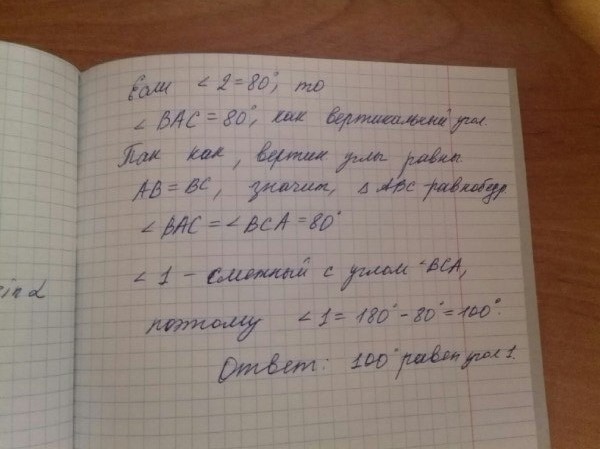 Если ∠2=80°, то
∠BAC=80°, как вертикальный угол.
Так как, вертик углы равны
AB=BC, значит, △ABC-равнобедр
∠BAC=∠BCA=80°
∠1-смежный с углом ∠BCA,
поэтому ∠1=180°-80°=100°.
Ответ: 100° равен угол 1.
sin α